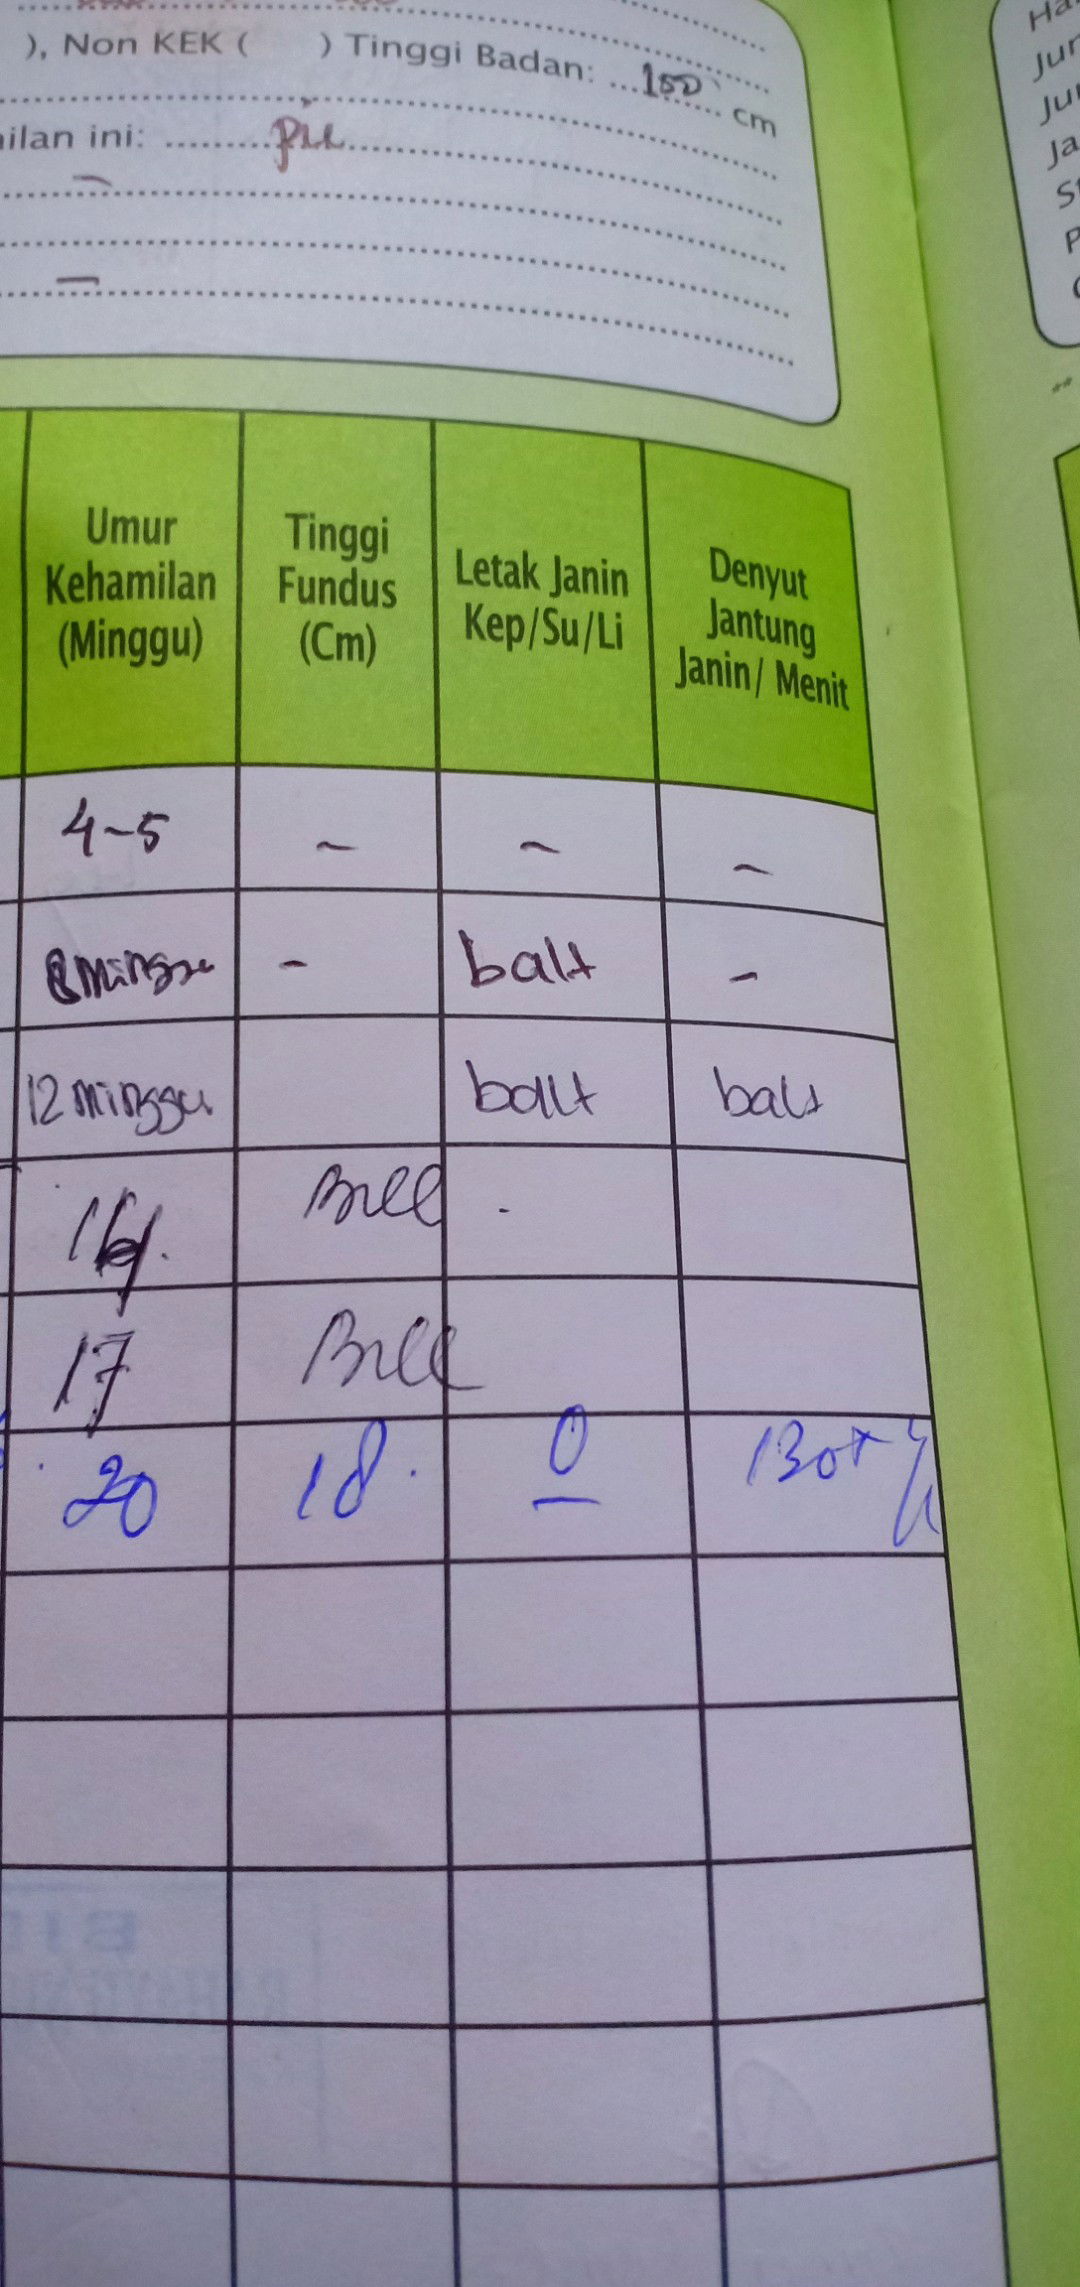 ), Non KEK ( ) Tinggi Badan: 150 cm
ilan ini: pil
Umur Kehamilan (Minggu)
Tinggi Fundus (Cm)
Letak Janin Kep/Su/Li
Denyut Jantung Janin/ Menit
4-5 - - -
8 minggu - balt -
12 minggu balt balt
16
17
20 18. 0 130x
Ha
Jur
Ju
Ja
S
P
**